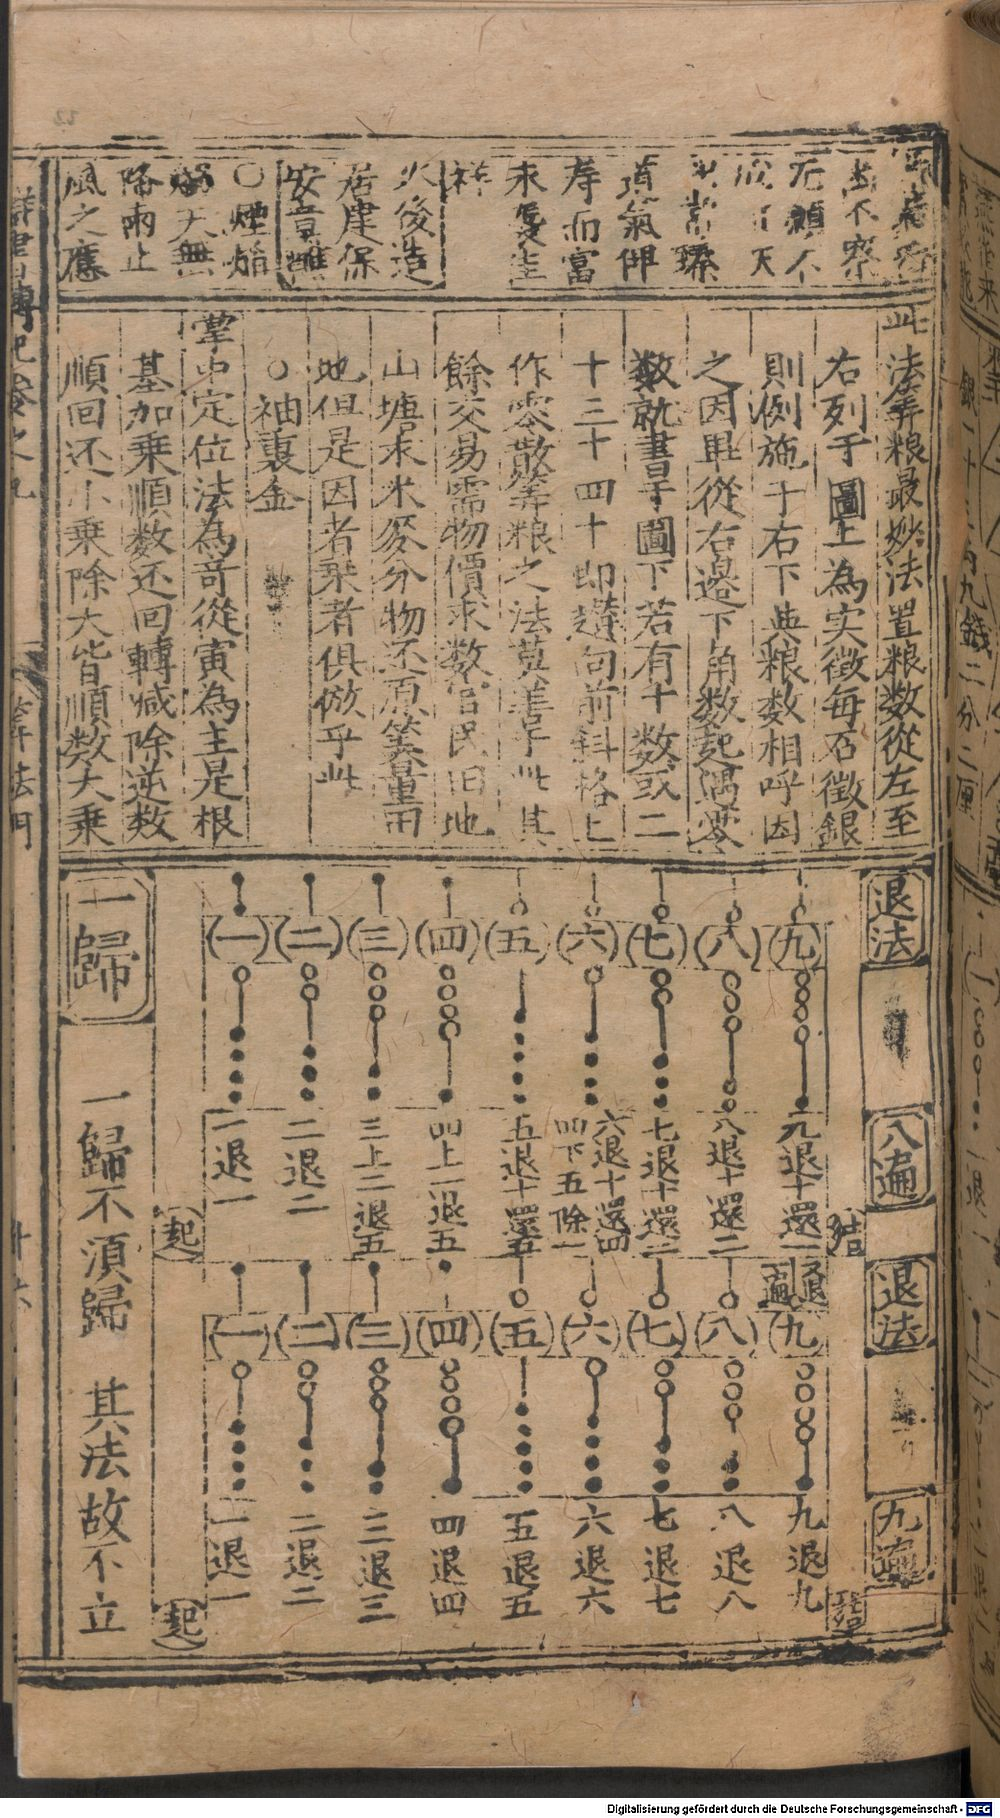 道氣仰
壽而富
永受圭
祥
火後造
居建保
安章醮
○煙焰
天無
降雨止
風之應
此法筭粮最妙法置粮数從左至
右列于圖上為实徵每石徵銀
則例施于右下與粮数相呼因
之因畢從右邉下角数起遇零
数就書于圖下若有十数或二
十三十四十即趲向前斜格上
作零散筭粮之法莫善乎此其
餘交易需物價求数官民田地
山塘求米麥分物还原筭量田
地但是因者乘者俱倣乎此
○袖裏金
掌中定位法為奇從寅為主是根
基加乘順数还回轉减除逆数
順回还小乘除大皆順数大乘
退法
八遍
退法
九遍
九 八 七 六 五 四 三 二 一
九退十還一
八退十還二
七退十還三
六退十還四
四下五除一
五退十還五
四上一退五
三上二退五
二退二
一退一
結
起
又退
遍
九 八 七 六 五 四 三 二 一
九退九
八退八
七退七
六退六
五退五
四退四
三退三
二退二
一退一
起
一歸
一歸不須歸 其法故不立
筭法門
Digitalisierung gefördert durch die Deutsche Forschungsgemeinschaft - DFG